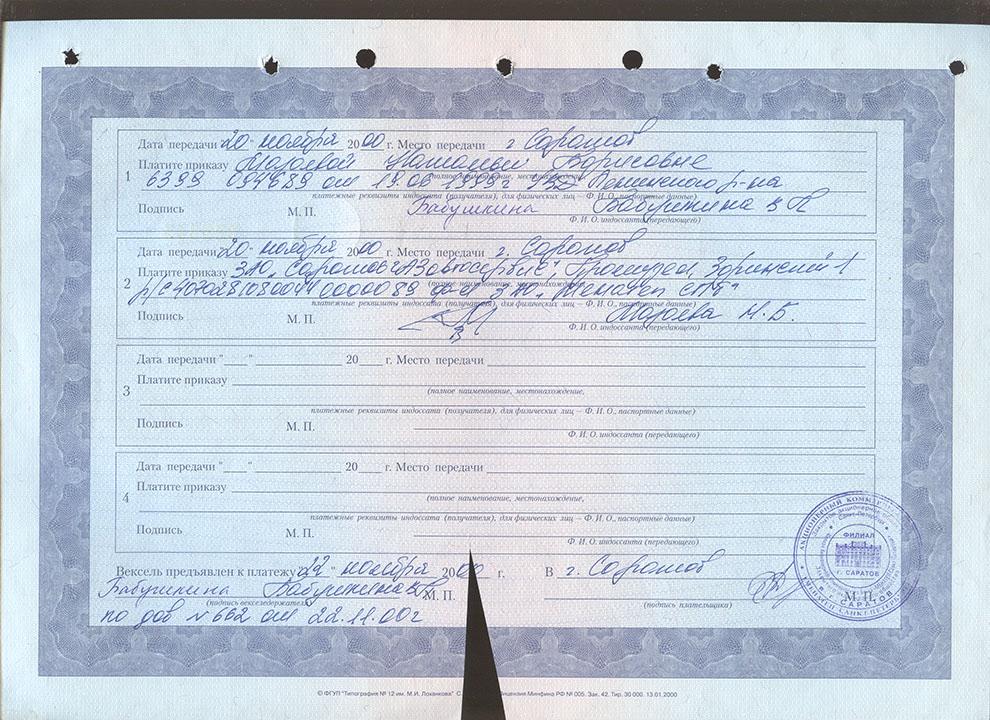 Дата передачи 20 ноября 2000 г. Место передачи г Саратов
Платите приказу Борисовне
(полное наименование, местонахождение,
1 6399 094689 от 19.06 1999г Ленинского р-на
платежные реквизиты индоссата (получателя), для физических лиц – Ф. И. О., паспортные данные)
Подпись М. П. Бабушкина
Ф. И. О. индоссанта (передающего)
Дата передачи 20 ноября 2000 г. Место передачи г. Саратов
Платите приказу ЗАО „ Проспект
(полное наименование, местонахождение,
2 р/с ЗАО
платежные реквизиты индоссата (получателя), для физических лиц – Ф. И. О., паспортные данные)
Подпись М. П. Н. Б.
Ф. И. О. индоссанта (передающего)
Дата передачи "___" 20___ г. Место передачи
Платите приказу
3 (полное наименование, местонахождение,
платежные реквизиты индоссата (получателя), для физических лиц – Ф. И. О., паспортные данные)
Подпись М. П.
Ф. И. О. индоссанта (передающего)
Дата передачи "___" 20___ г. Место передачи
Платите приказу
4 (полное наименование, местонахождение,
платежные реквизиты индоссата (получателя), для физических лиц – Ф. И. О., паспортные данные)
Подпись М. П.
Ф. И. О. индоссанта (передающего)
Вексель предъявлен к платежу 22 ноября 2000 г. В г. Саратов
Бабушкина М. П.
(подпись векселедержателя) (подпись плательщика) М. П.
по дов №662 от 22.11.00г
ФИЛИАЛ
г. САРАТОВ
© ФГУП "Типография № 12 им. М.И. Лоханкова" Лицензия Минфина РФ № 005. Зак. 42. Тир. 30 000. 13.01.2000